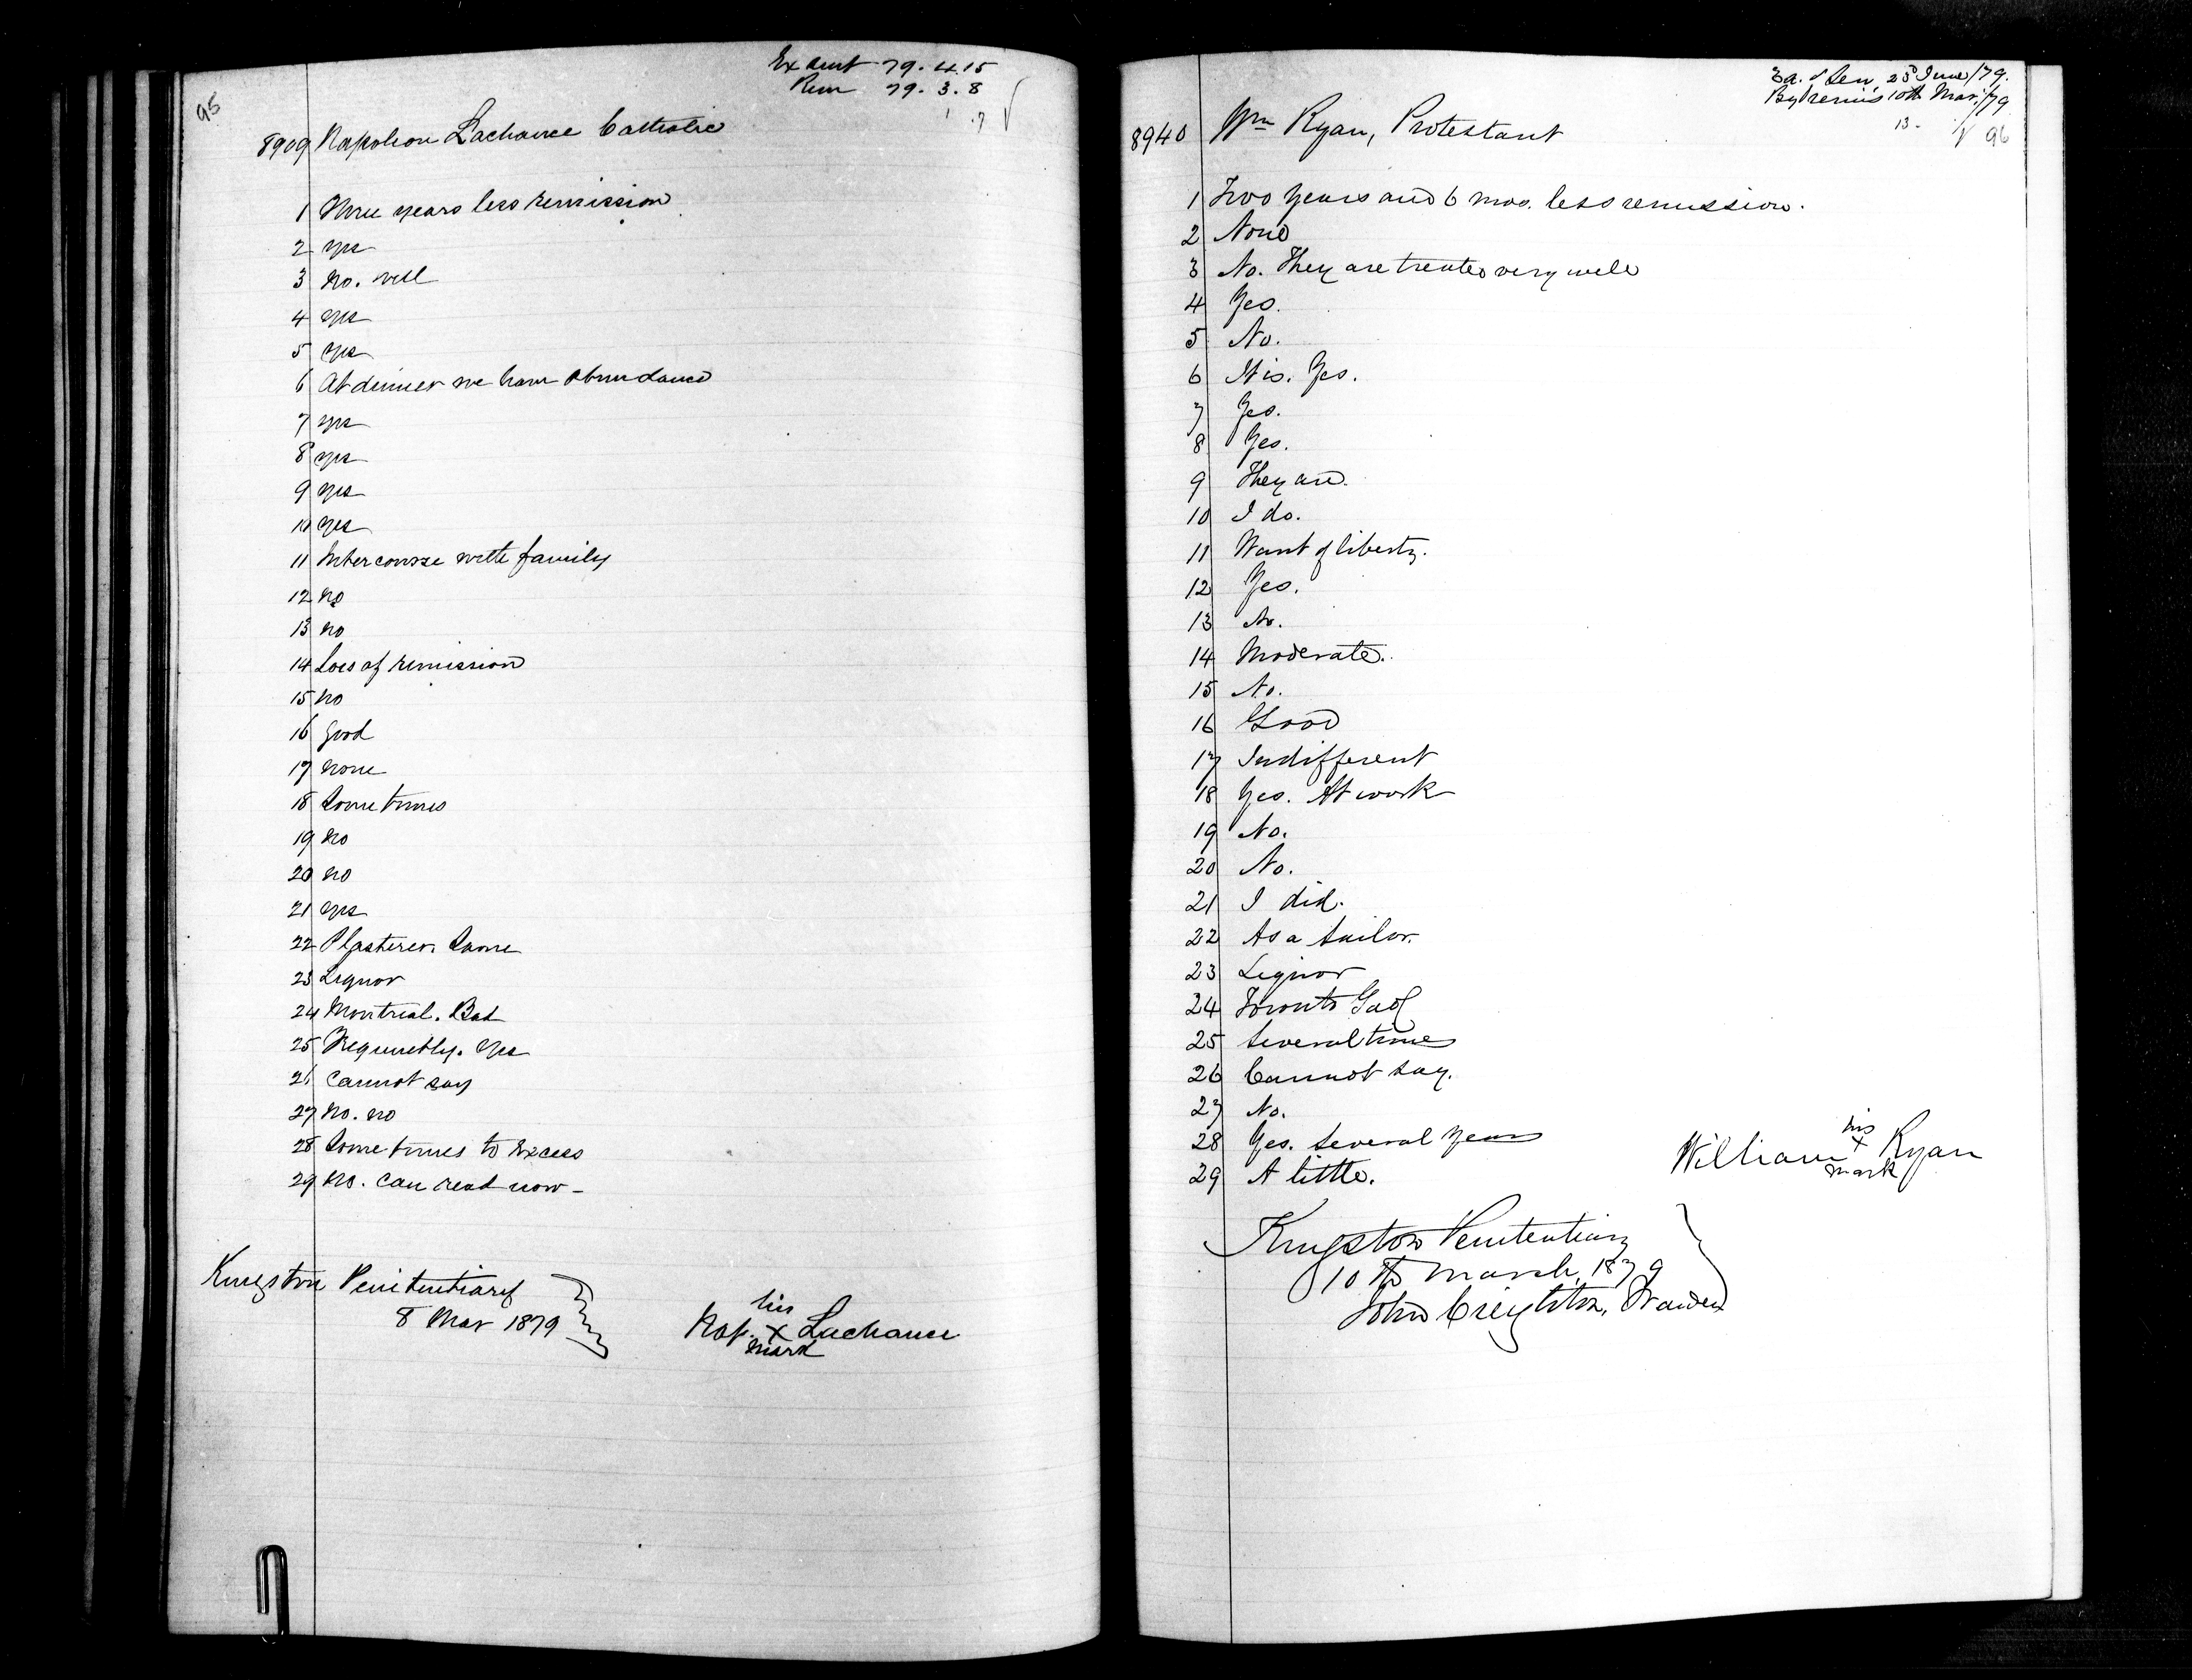 95
79. 4. 15
Rem 79. 3. 8
8909 Napoleon Lachance Catholic
1 Three years less remission
2 yes
3 no. well
4 yes
5 yes
6 At dinner we have abundance
7 yes
8 yes
9 yes
10 yes
11 Intercourse with family
12 no
13 no
14 Loss of remission
15 no
16 good
17 none
18 Sometimes
19 no
20 no
21 yes
22 Plasterer. Same
23 Liquor
24 Montreal. Bad
25 Frequently. Yes
26 Cannot say
27 No. no
28 Sometimes to Excess
29 No. Can read now -
Kingston Penitentiary
8 Mar 1879
his
Nap. x Lachance
mark
Sen. 23d June/79.
By remis 10th Mar./79
13.
96
8940 Wm Ryan, Protestant
1 Two years and 6 mos. less remission.
2 None
3 No. They are treated very well
4 Yes.
5 No.
6 It is. Yes.
7 Yes.
8 Yes.
9 They are.
10 I do.
11 Want of liberty.
12 Yes.
13 No.
14 Moderate.
15 No.
16 Good
17 Indifferent
18 Yes. At work
19 No.
20 No.
21 I did.
22 As a tailor.
23 Liquor
24 Toronto Gaol
25 Several times
26 Cannot say.
27 No.
28 Yes. Several years
29 A little.
his
William x Ryan
mark
Kingston Penitentiary
10th March, 1879
John Creighton, Warden